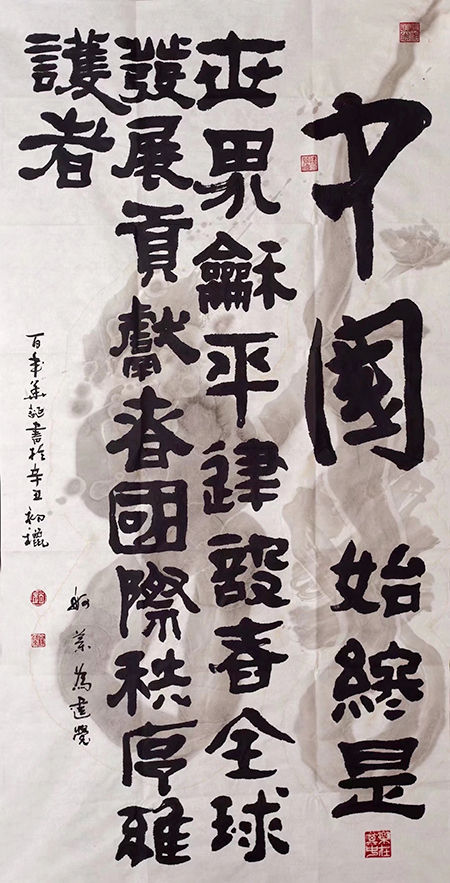 中國始終是
世界龢平建設者全球
發展貢獻者國際秩序維
護者
百年華誕書於辛丑初